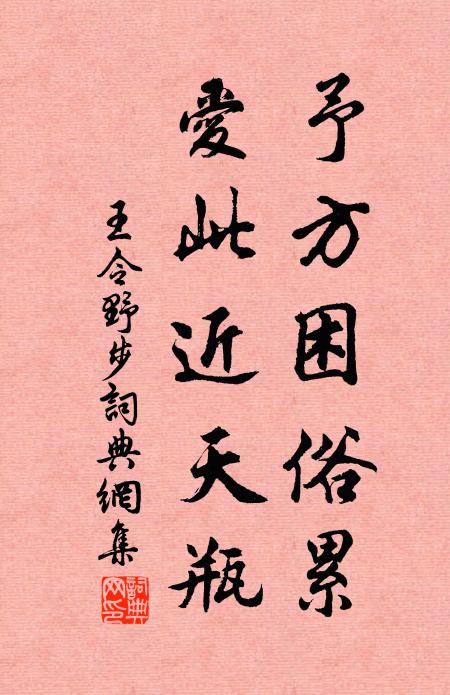 予方困俗累
愛此近天瓶
王令野步詞典網集
詞典网印